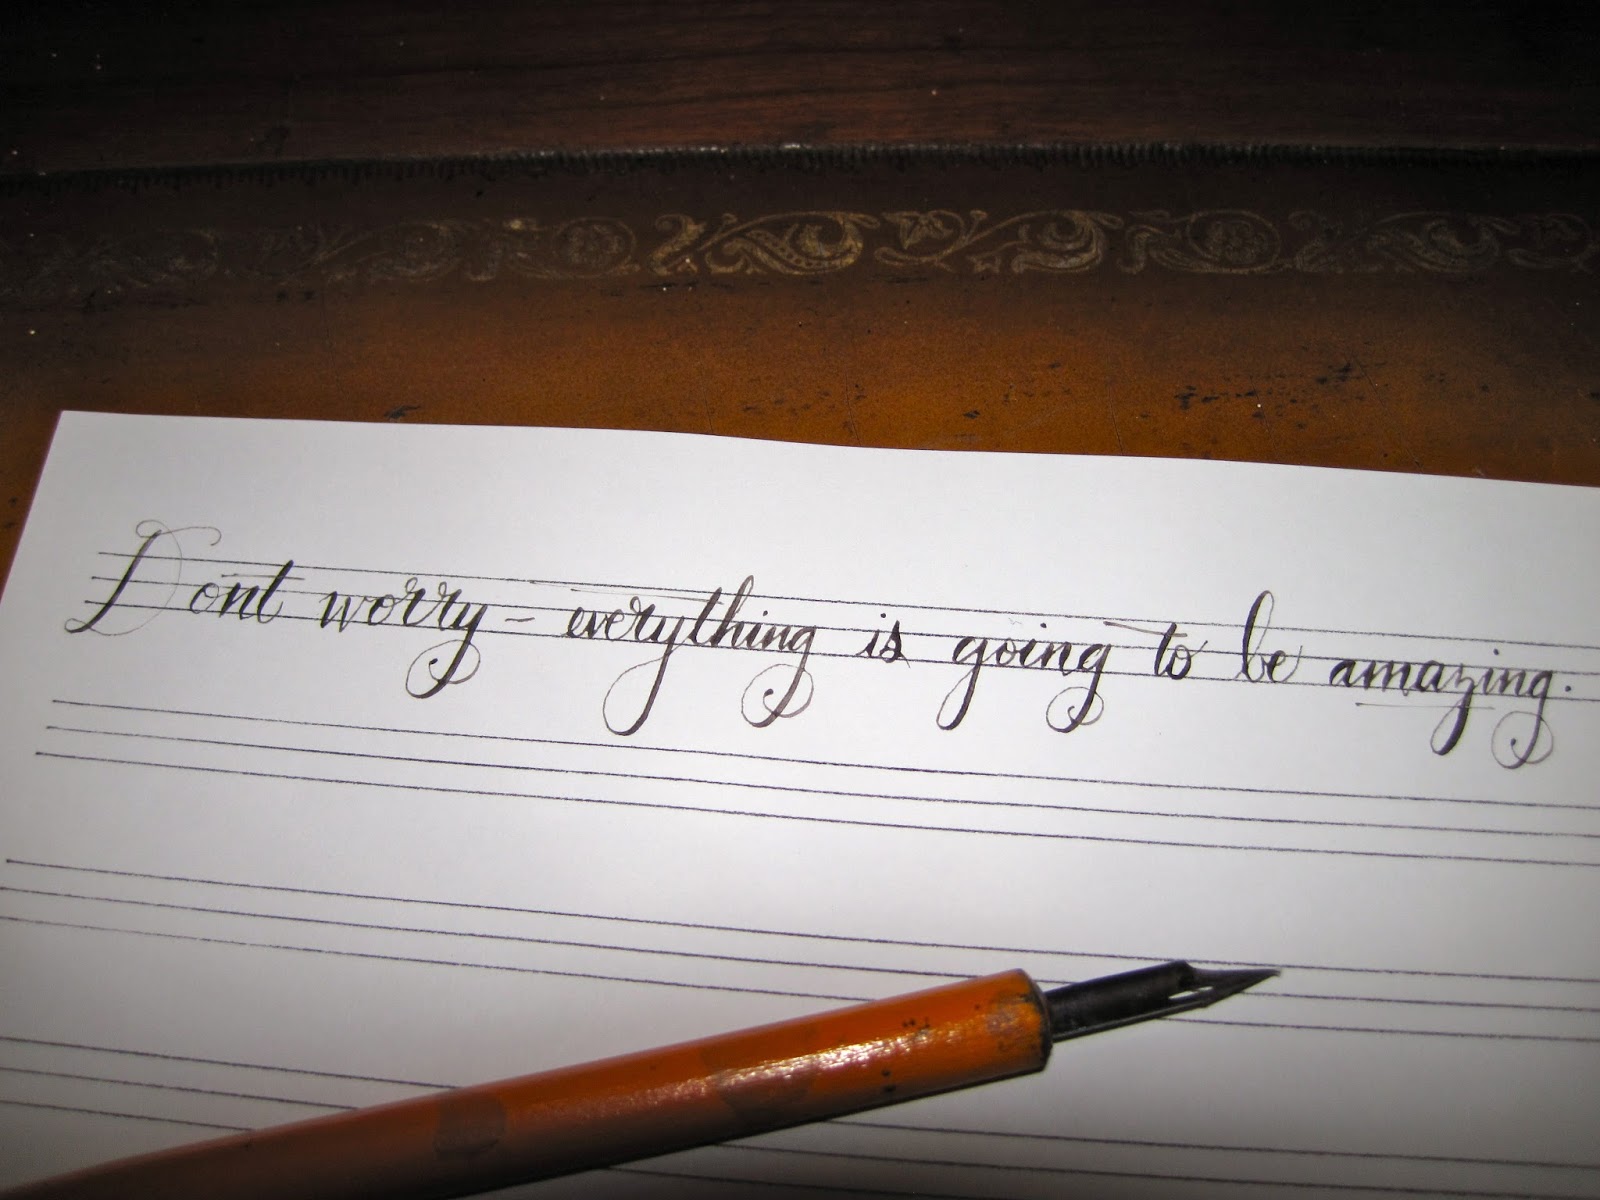 Dont worry - everything is going to be amazing.